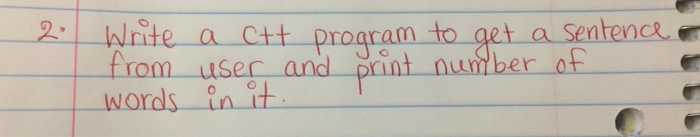 2. Write a C++ program to get a sentence
from user and print number of
words in it.